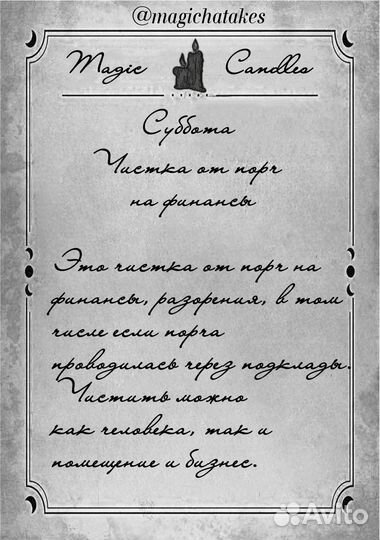 @magichatakes
Magic Candles
Суббота
Чистка от порч
на финансы
Это чистка от порч на
финансы, разорения, в том
числе если порча
проводилась через подклады.
Чистить можно
как человека, так и
помещение и бизнес.
Avito